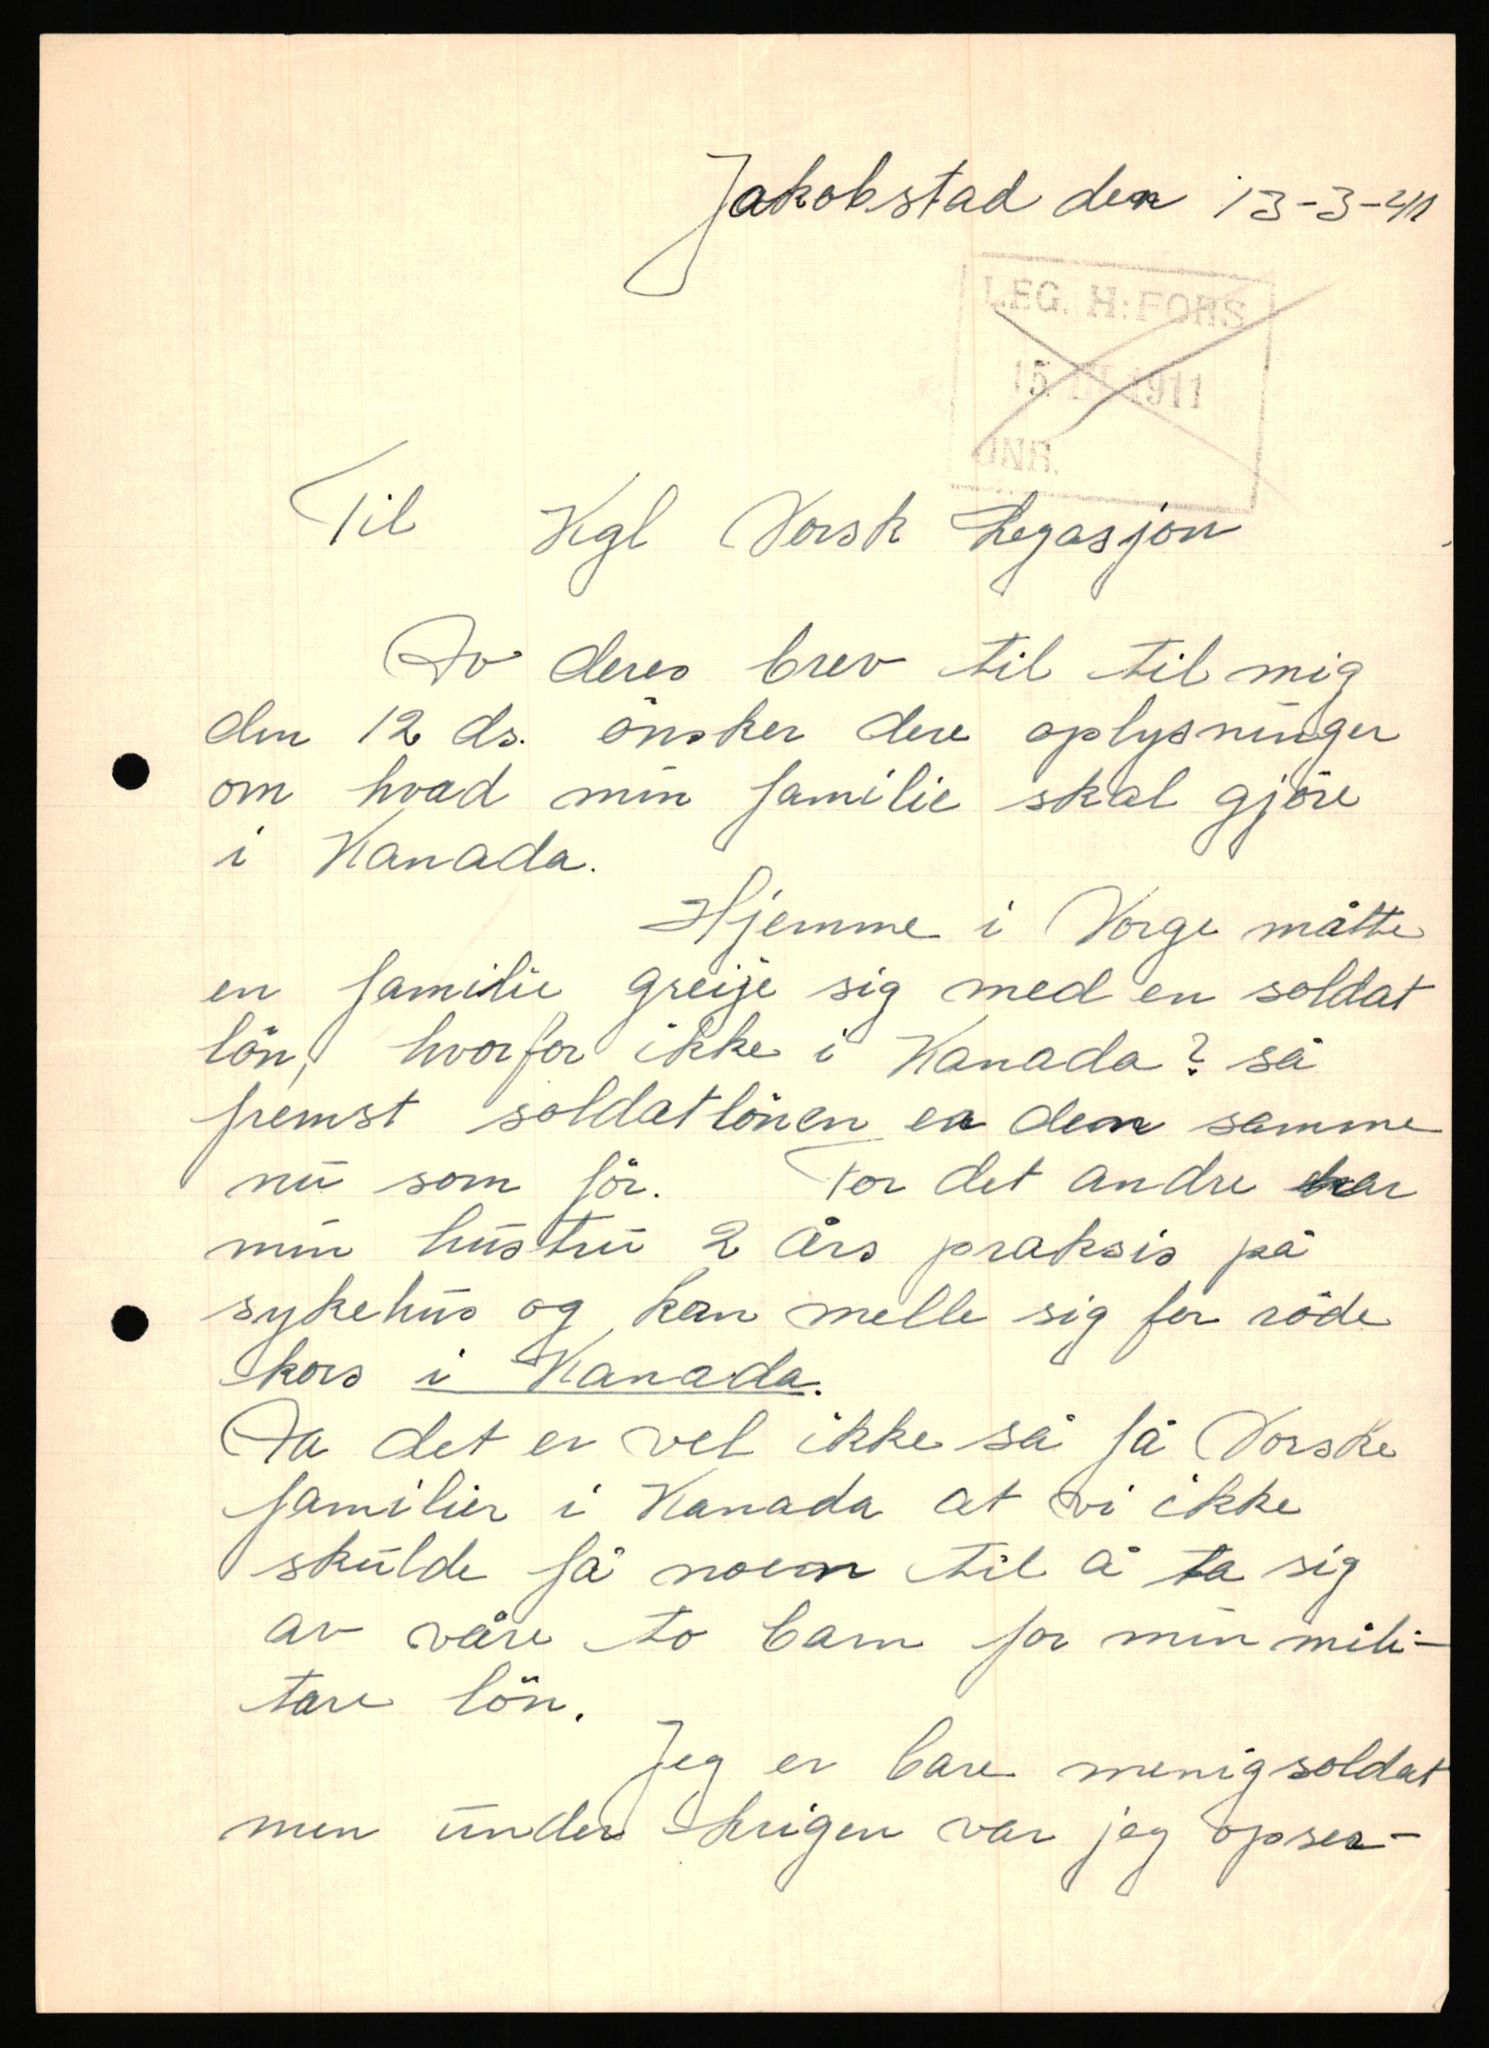 Jakobstad den 13-3-41
LEG. H:FORS
15. III 1941
JNR.
Til Kgl Norsk Legasjon
Av deres brev til til mig
den 12 ds. önsker dere oplysninger
om hvad min familie skal gjöre
i Kanada.
Hjemme i Norge måtte
en familie greije sig med en soldat
lön, hvorfor ikke i Kanada? så
fremst soldatlönen er den samme
nu som för. For det andre har
min hustru 2 års praksis på
sykehus og kan melle sig for röde
kors i Kanada.
Da det er vel ikke så få Norske
familier i Kanada at vi ikke
skulde få noen til å ta sig
av våre to barn for min mili-
tare lön.
Jeg er bare menigsoldat
men under krigen var jeg opser-